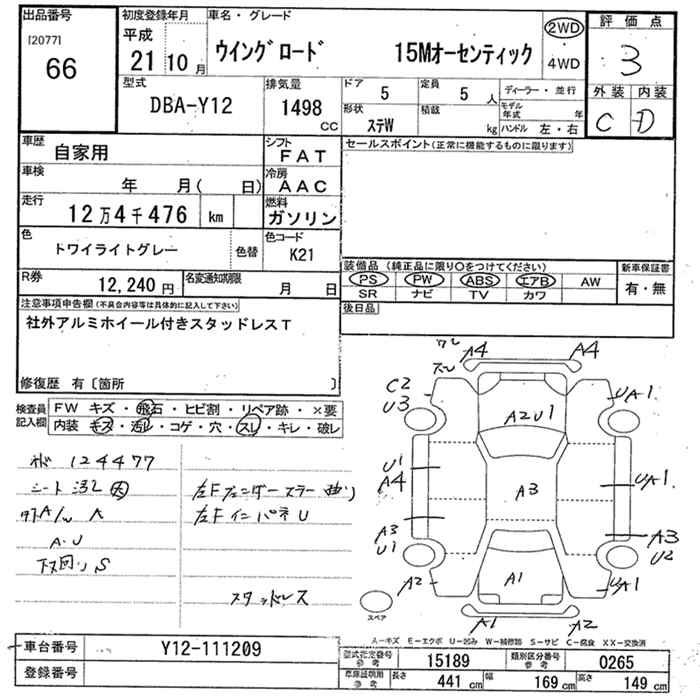 出品番号 初度登録年月 車名・グレード 評価点
[2077] 平成 2WD
66 21 10月 ウイングロード 15Mオーセンティック 4WD 3
型式 排気量 ドア 5 定員 5人 ディーラー・並行 外装 内装
DBA-Y12 1498 CC 形状 ステW 積載 kg モデル年式 年 C D
ハンドル 左・右
車歴 自家用 シフト FAT セールスポイント(正常に機能するものに限ります)
車検 年 月( 日) 冷房 AAC
走行 12万4千476 km 燃料 ガソリン
色 トワイライトグレー 色替 色コード K21
R券 12,240円 名変通知期限 月 日 装備品(純正品に限り○をつけてください) 新車保証書
PS PW ABS エアB AW 有・無
SR ナビ TV カワ
注意事項申告欄(不具合内容等は具体的に記入して下さい) 後日品
社外アルミホイール付きスタッドレスT
修復歴 有〔箇所
検査員記入欄 FW キズ・飛石・ヒビ割・リペア跡・×要
内装 キズ・汚レ・コゲ・穴・スレ・キレ・破レ
A4 A4
C2 U3 UA1
A2U1
124477 U1 A4 A3 UA1
シート 大 左Fフェンダー ステー 曲り
A/W A 左F インパネ U
A3 U1 A3 U2
A・U
下回り S A2 A1 UA1
スタッドレス スペア A1 A2
A-キズ E-エクボ U-凹み W-補修跡 S-サビ C-腐食 XX-交換済
車台番号 Y12-111209 型式指定番号 参考 15189 類別区分番号 参考 0265
登録番号 車庫証明用 参考 長さ 441 cm 幅 169 cm 高さ 149 cm